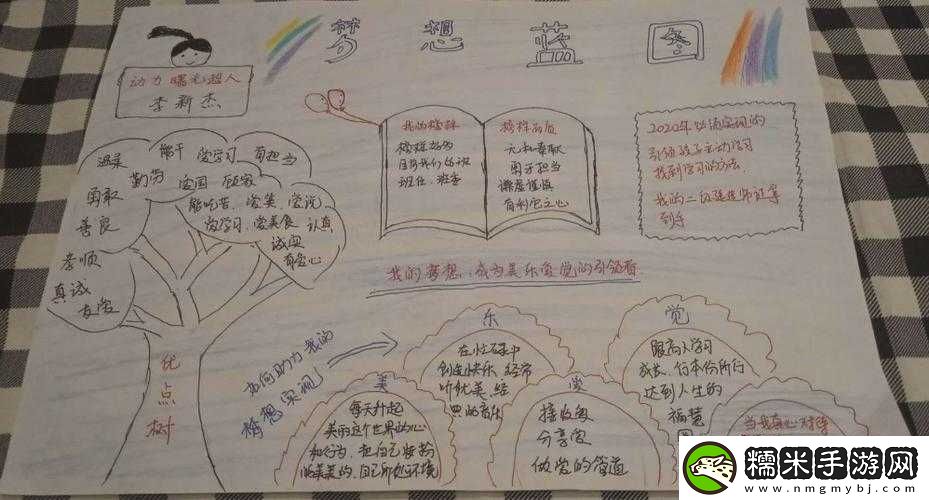 梦想蓝图
动力曙光超人
李新杰
温柔 能干 爱学习 有担当
勇敢 勤劳 爱国 顾家
善良 能吃苦、爱美、爱洗
爱学习、爱美食 认真
孝顺 诚实
真诚 有爱心
友爱
优点树
我的榜样
榜样就为
班任、班委
榜样品质
无私奉献
勇于担当
谦虚谨慎
有利他之心
2022年必须实现的
引领孩子主动学习
找到学习的方法.
我的二级建造师证拿
到手
我的梦想:成为美乐爱觉的引领者
如何助力我的
梦想实现?
美
每天升起
美丽这个世界的心
和行为,把自己妆扮
美美的、自己所处环境
乐
在忙碌中
创造快乐、经常
听优美、经
典的音乐
爱
接收爱
分享爱
做爱的管道
觉
跟高人学习
成长、行本份所行
达到人生的
福慧
当我真心对待
糯米手游网
www.nmgmybj.com